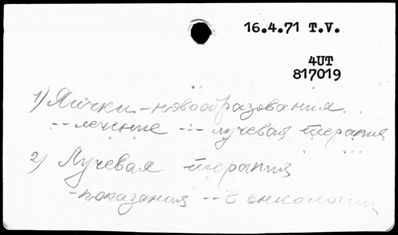 16.4.71 T.V.
4UT
817019
1) Яички - новообразования
-- лечение -- лучевая терапия
2) Лучевая терапия
- показания -- в онкологии